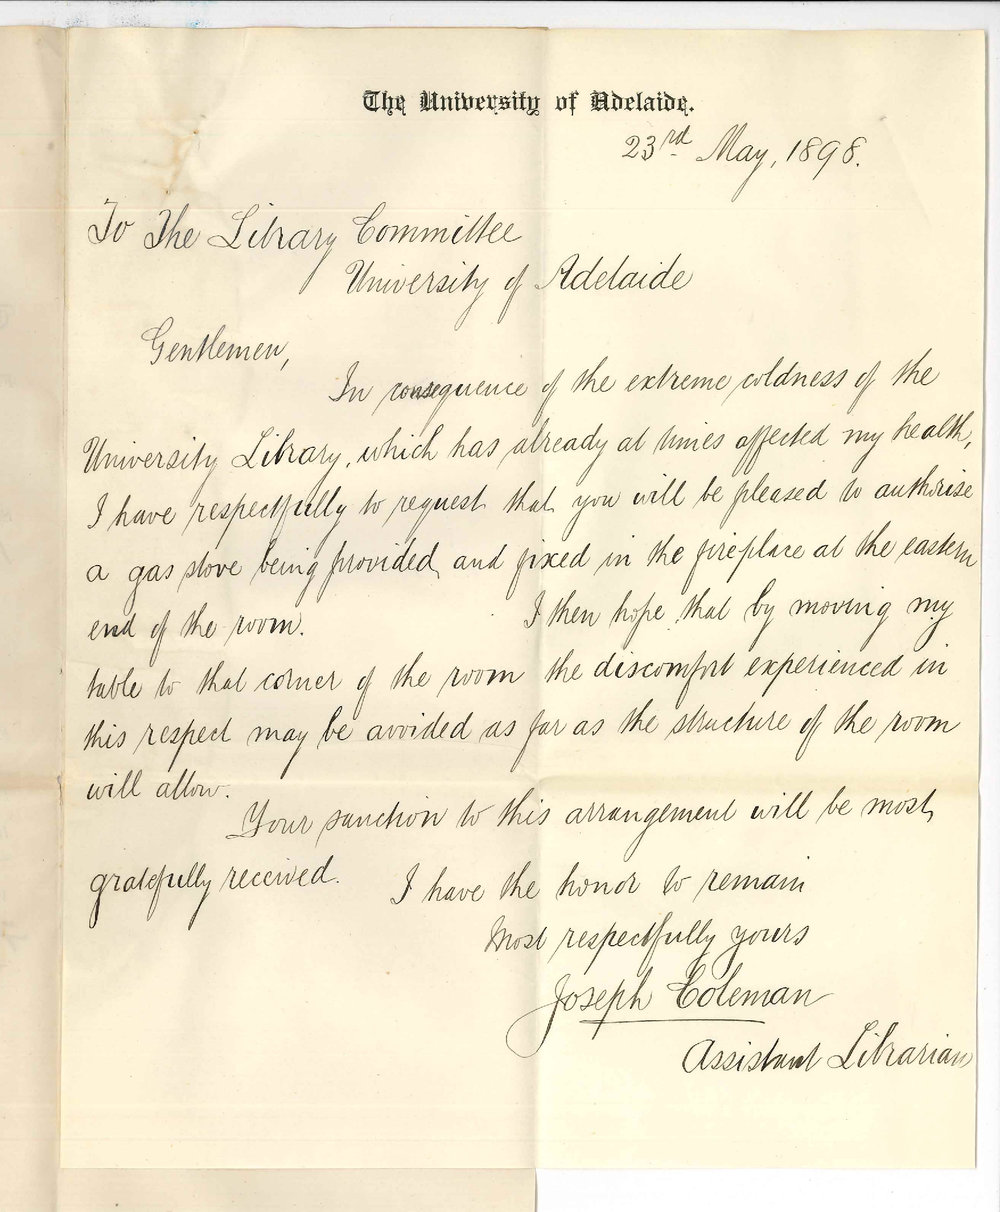 The University of Adelaide.
23rd May, 1898.
To The Library Committee
University of Adelaide
Gentlemen,
In consequence of the extreme coldness of the
University Library, which has already at times affected my health,
I have respectfully to request that you will be pleased to authorise
a gas stove being provided, and fixed in the fireplace at the eastern
end of the room. I then hope that by moving my
table to that corner of the room the discomfort experienced in
this respect may be avoided as far as the structure of the room
will allow.
Your sanction to this arrangement will be most
gratefully received.
I have the honor to remain
Most respectfully yours
Joseph Coleman
Assistant Librarian